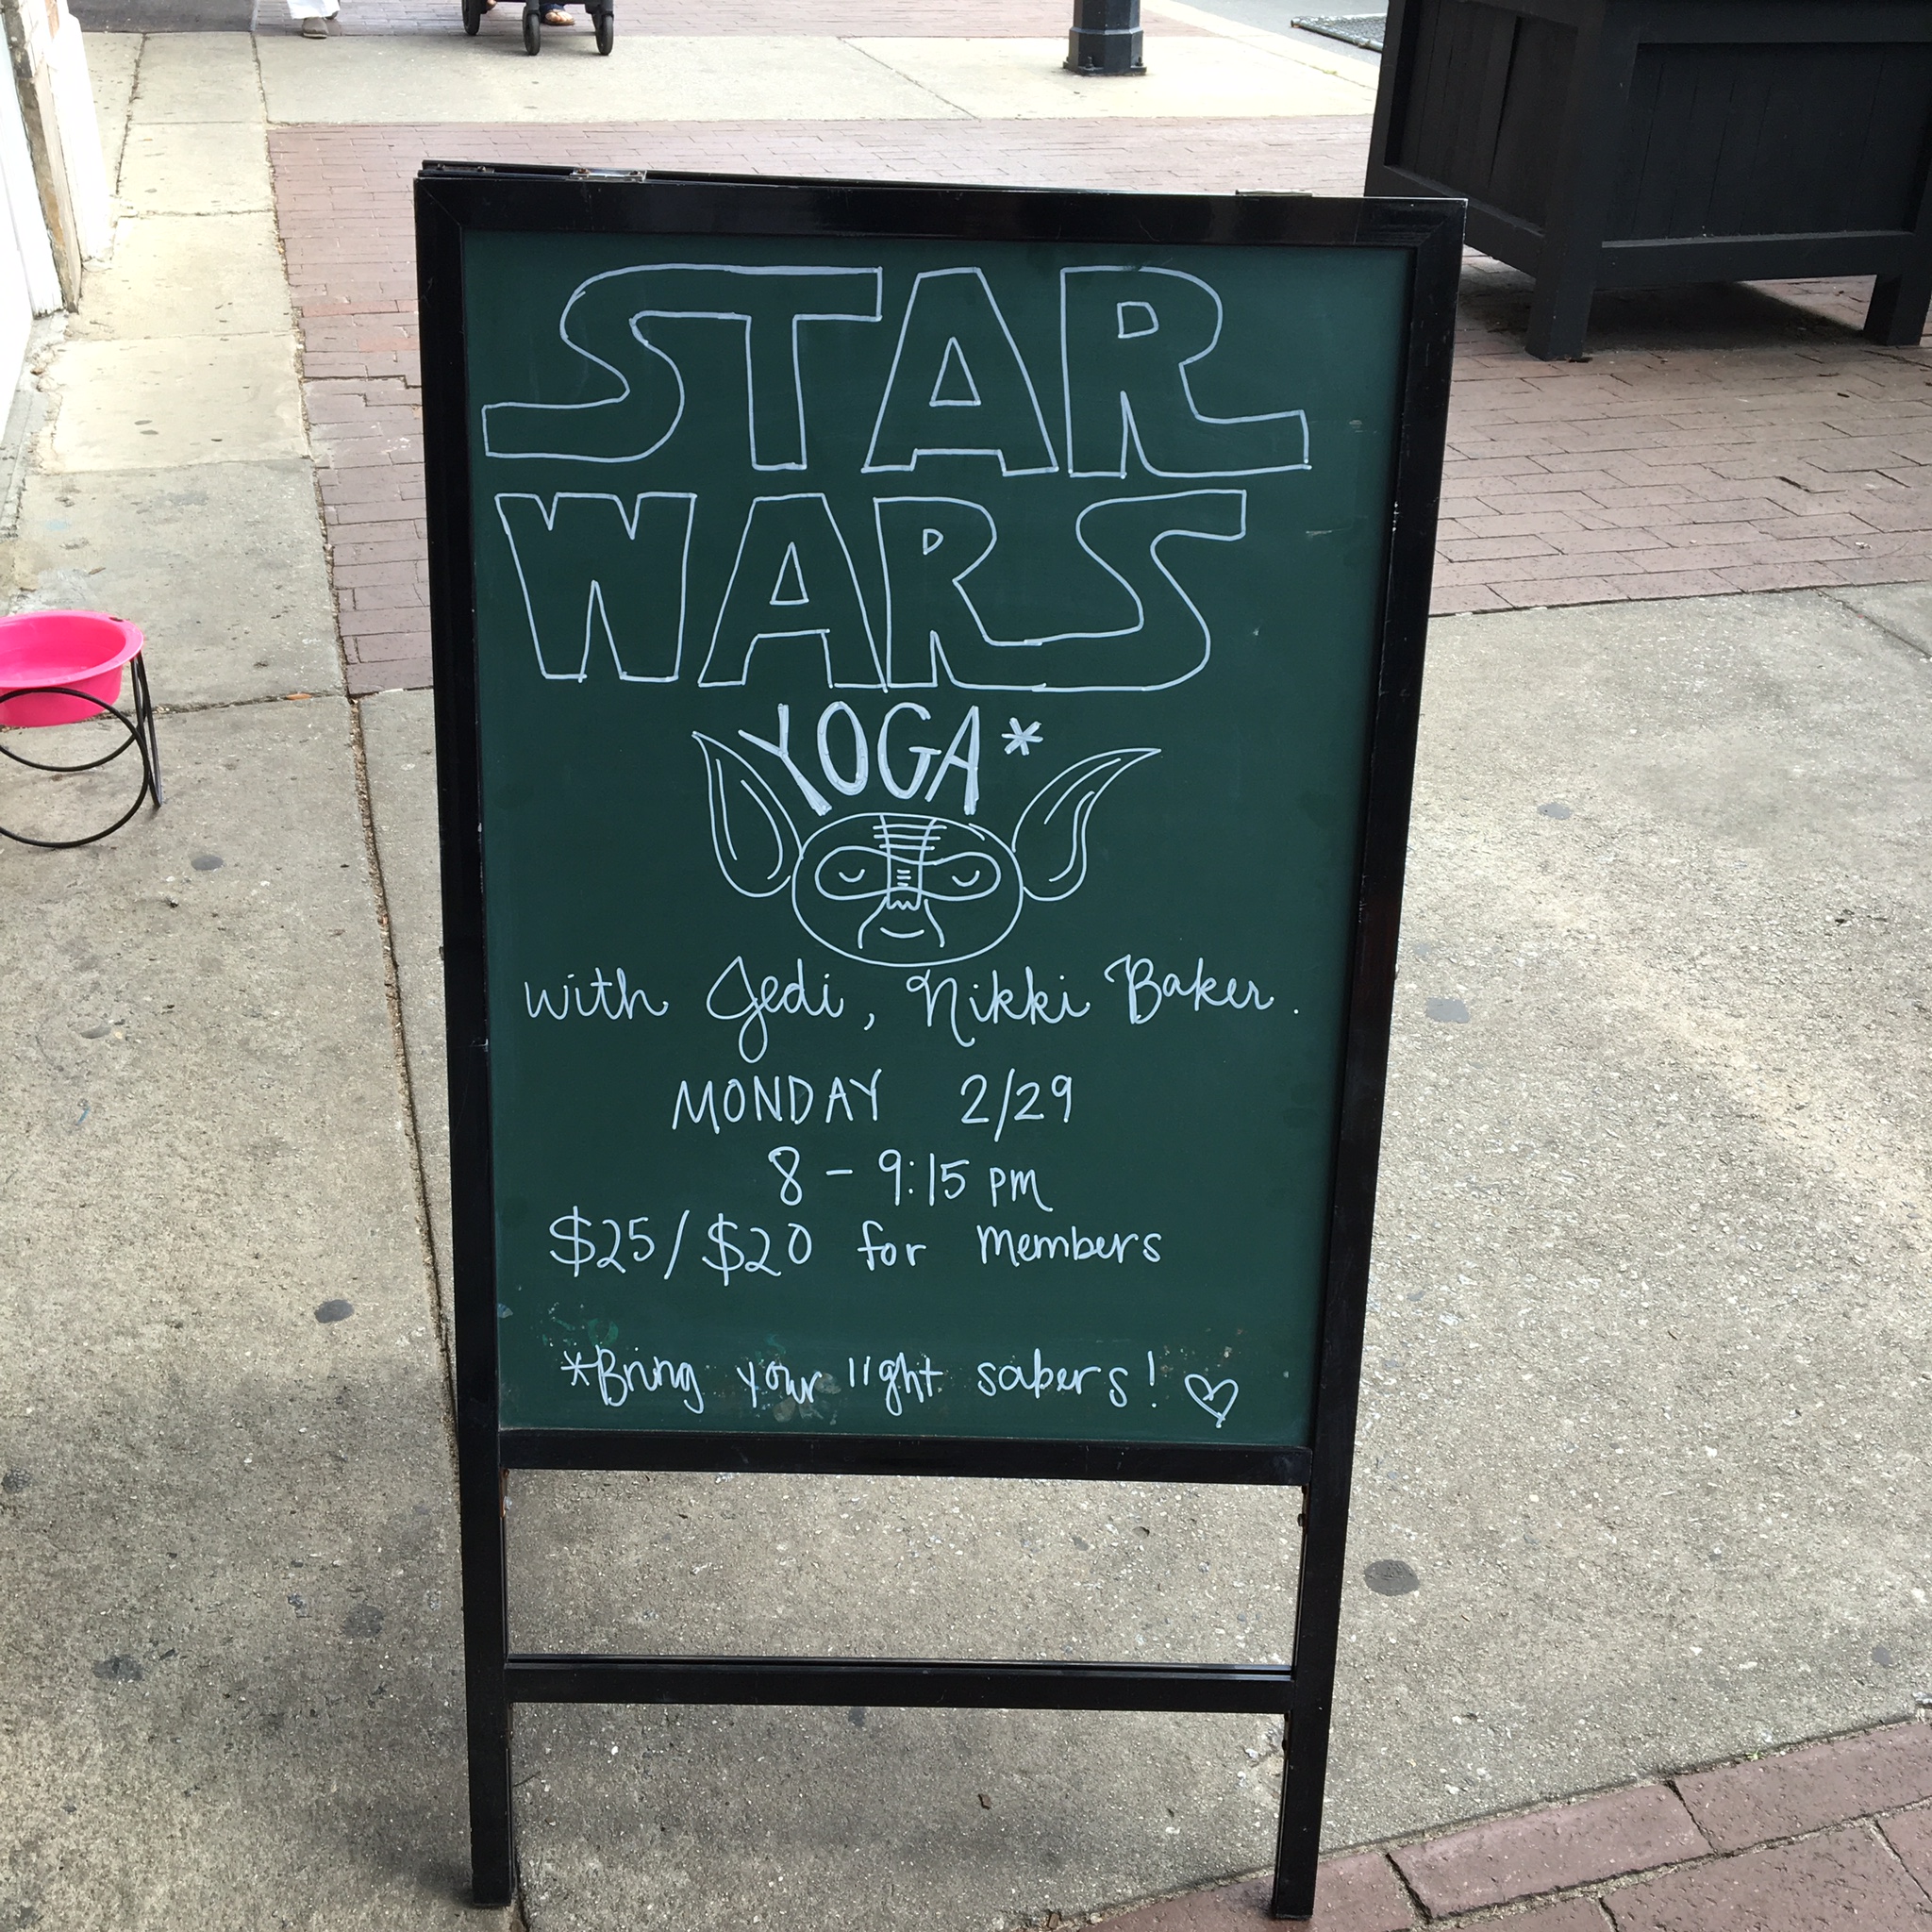 STAR
WARS
YOGA*
with Jedi, Nikki Baker.
MONDAY 2/29
8 - 9:15 pm
$25/$20 for members
*Bring your light sabers! ♡